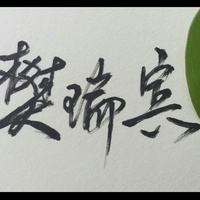 樊瑞宾